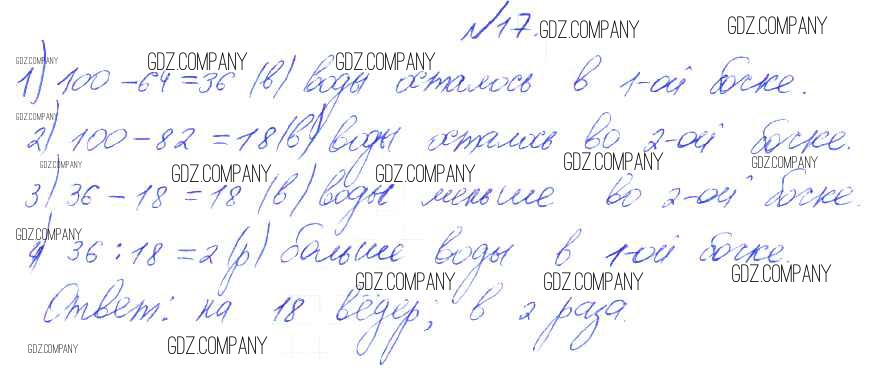 №17.
1) 100 - 64 = 36 (в) воды осталось в 1-ой бочке.
2) 100 - 82 = 18 (в) воды осталось во 2-ой бочке.
3) 36 - 18 = 18 (в) воды меньше во 2-ой бочке.
4) 36 : 18 = 2 (р) больше воды в 1-ой бочке.
Ответ: на 18 вёдер; в 2 раза.
GDZ.COMPANY GDZ.COMPANY
GDZ.COMPANY GDZ.COMPANY GDZ.COMPANY
GDZ.COMPANY
GDZ.COMPANY GDZ.COMPANY GDZ.COMPANY GDZ.COMPANY GDZ.COMPANY
GDZ.COMPANY
GDZ.COMPANY GDZ.COMPANY GDZ.COMPANY
GDZ.COMPANY GDZ.COMPANY